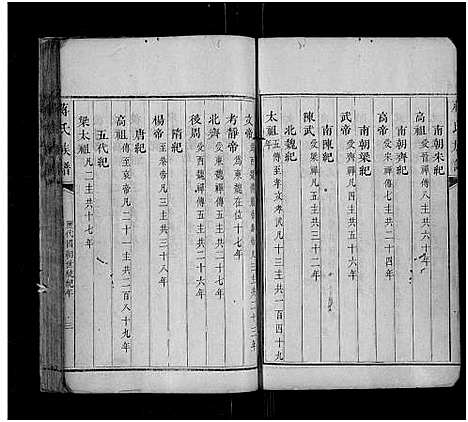 南朝宋紀
高祖受晉禪傳八主共六十年
南朝齊紀
高帝受宋禪傳七主共二十四年
南朝梁紀
武帝受齊禪凡四主共五十六年
南陳紀
陳武受梁禪凡五主共三十二年
北魏紀
太祖十二傳至孝武凡十三主共一百四十九年
文帝
考靜帝為東魏在位十七年
北齊受東魏禪傳六主共二十八年
後周受西魏禪傳五主共二十六年
隋紀
楊帝至恭帝凡三主共三十八年
唐紀
高祖傳至哀帝凡二十一主共二百八十九年
五代紀
梁太祖凡二主共十七年
蔣氏族譜
歷代國朝世統紀年
三